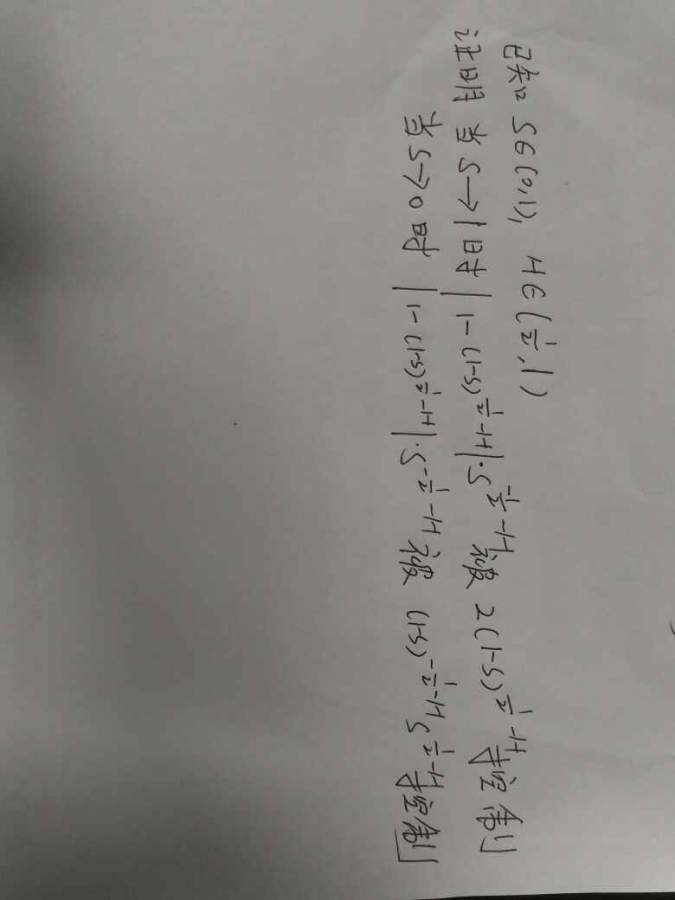 已知 S∈(0,1), H∈(½,1)
证明 当 S→1时 |1-(1-S)^{½-H}|·S^{-½-H} 被 2(1-S)^{½-H} 控制
当S→0时 |1-(1-S)^{½-H}|·S^{-½-H} 被 (1-S)^{-½-H} S^{½-H} 控制